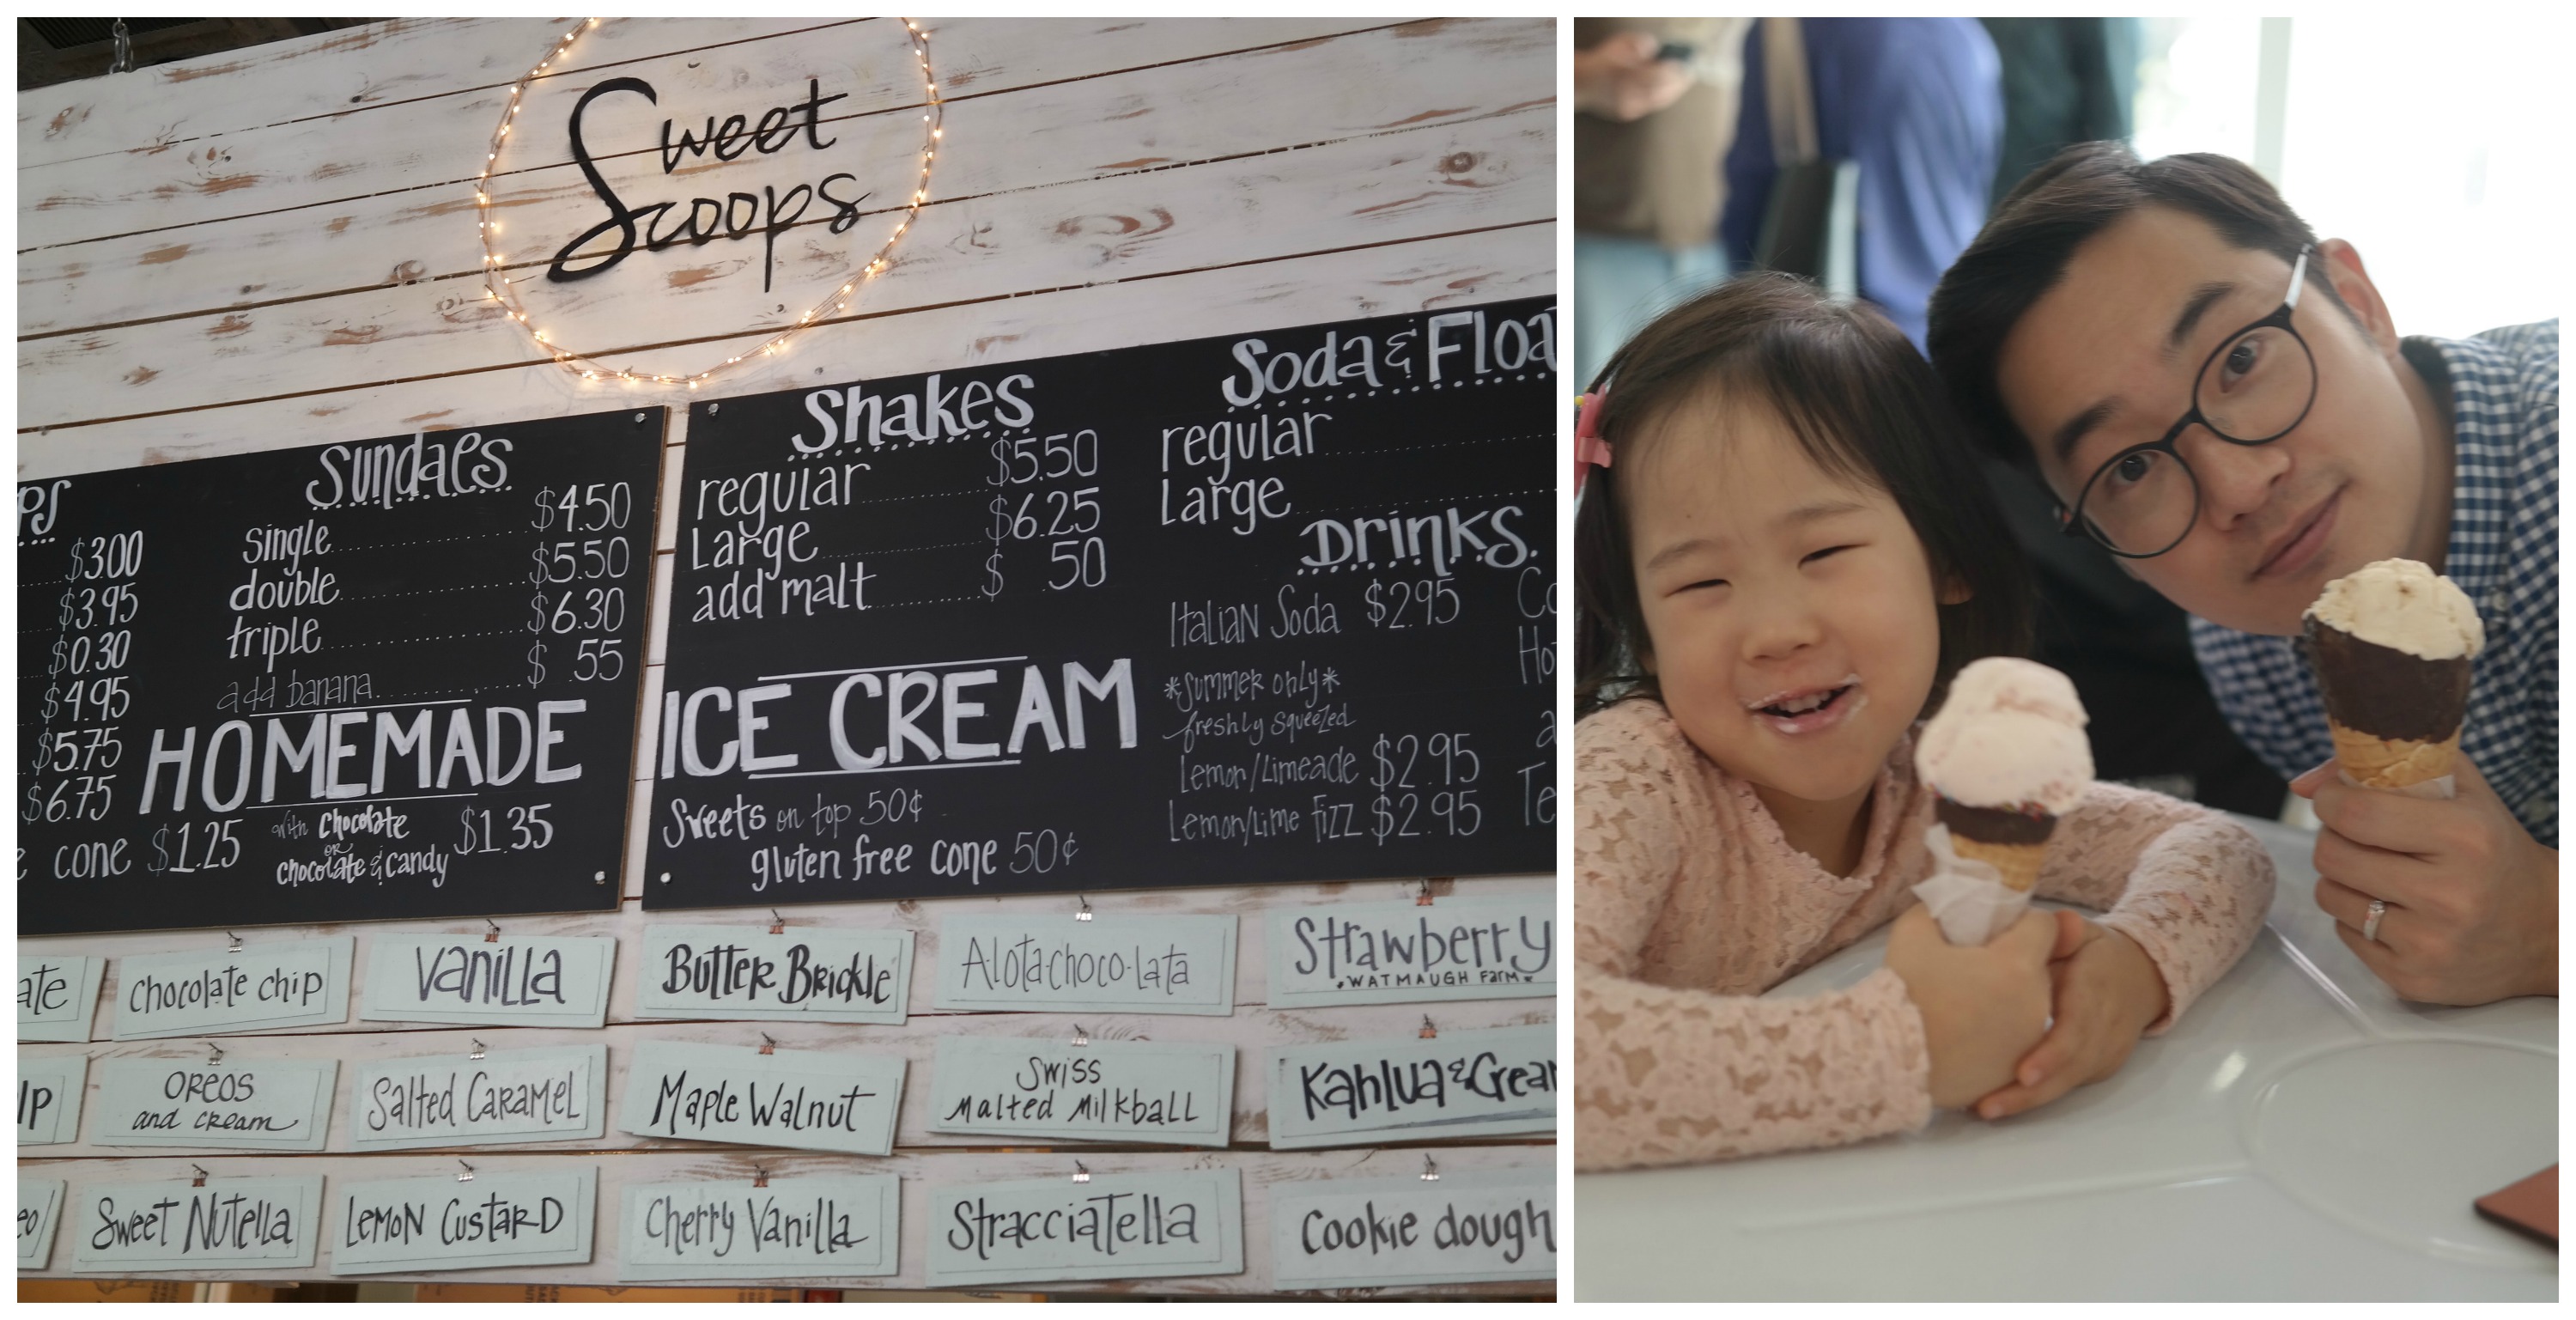 Sweet
Scoops
$3.00
$3.95
$0.30
$4.95
$5.75
$6.75
cone $1.25
with chocolate
or
chocolate & candy
$1.35
Sundaes
single $4.50
double $5.50
triple $6.30
add banana $ .55
HOMEMADE
Shakes
regular $5.50
Large $6.25
add malt $ .50
ICE CREAM
Sweets on top 50¢
gluten free cone 50¢
Soda & Floa
regular
Large
Drinks
Italian Soda $2.95
*summer only*
freshly squeezed
Lemon/Limeade $2.95
Lemon/Lime Fizz $2.95
chocolate chip
Vanilla
Butter Brickle
A·lota·choco·lata
Strawberry
WATMAUGH FARM
OREOS
and cream
Salted Caramel
Maple Walnut
Swiss
Malted Milkball
Kahlua & Crea
Sweet Nutella
Lemon Custard
Cherry Vanilla
Stracciatella
Cookie dough